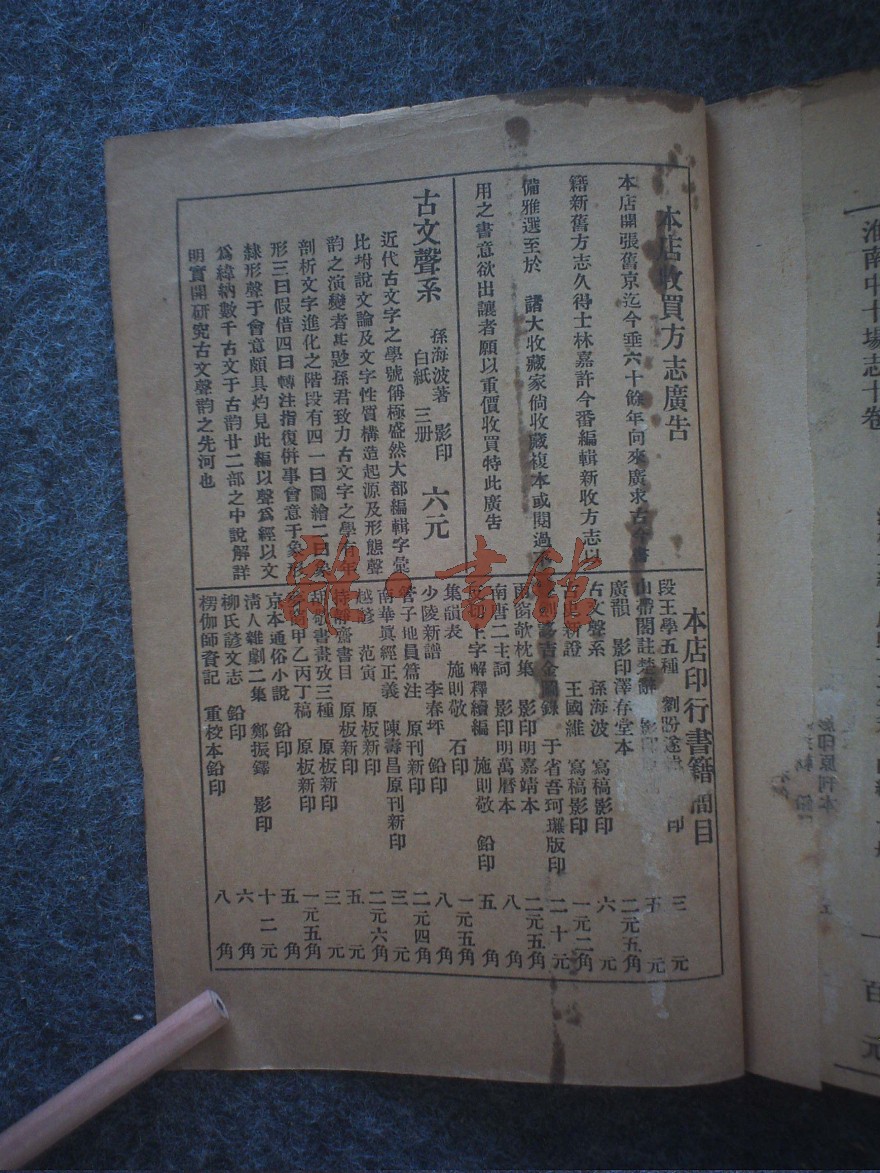 本店收買方志廣告
本店開張舊京迄今垂六十餘年向來廣求古今書
籍新舊方志久得士林嘉許今番編輯新收方志以
備雅選至於 諸大收藏家倘收藏複本或閱過不
用之書意欲出讓者願以重價收買特此廣告
古文聲系 孫海波著 影印 白紙 三册 六元
近代古文字之學號稱極盛然大都編輯字彙
比坿說文論及文字性質構造起源及形態聲
韵之演變者甚尟孫君致力古文字之學有年
剖析文字進化之階段有四一曰圖繪二曰象
形三曰假借四曰轉注指復併事會意于象形
隸形聲于會意頗具灼見此編以聲爲經以文
爲緯納數千古文于古韵廿二部之中說解詳
明實開研究古文聲韵之先河也
本店印行書籍簡目
段王學五種 劉盼遂 印 三元
山帶閣註楚辭 影印 五元
廣韻 影印澤存堂本 二元五角
古文聲系 孫海波 寫稿影印 六元
古史新證 王國維 寫稿影印 一元二角
吉金圖錄 于省吾珂瓘版印 二十元
雨窗欹枕集 影印明嘉靖本 二元五角
南唐二主詞 影印明萬曆本 八角
字解釋續編 施則敬 鉛印 五角
集韻表 施則敬 石印 一元五角
少陵新譜 李春坪 鉛印 八角
管子地員篇注 原刊新印 二元四角
南華眞經正義 陳壽昌原刊新印 三元
越諺 范寅 原板新印 二元六角
齋書目 原板新印 五元
書畫攷三種 原板新印 三元
甲乙丙丁稿 原板新印 一元五角
京本通俗小說 鉛印 五角
淸人雜劇二集 鄭振鐸 影印 十二元
柳氏諺文志 鉛印 六角
楞伽師資記 重校本鉛印 八角
淮南中十場志十卷
影印原刊本
一百元
雜·書館